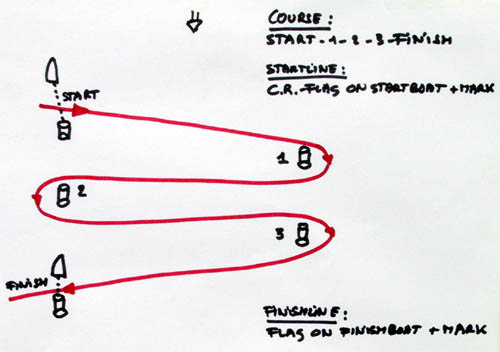 COURSE:
START-1-2-3-FINISH
STARTLINE:
C.R.-FLAG ON STARTBOAT + MARK
START
1
2
3
FINISH
FINISHLINE:
FLAG ON FINISHBOAT + MARK